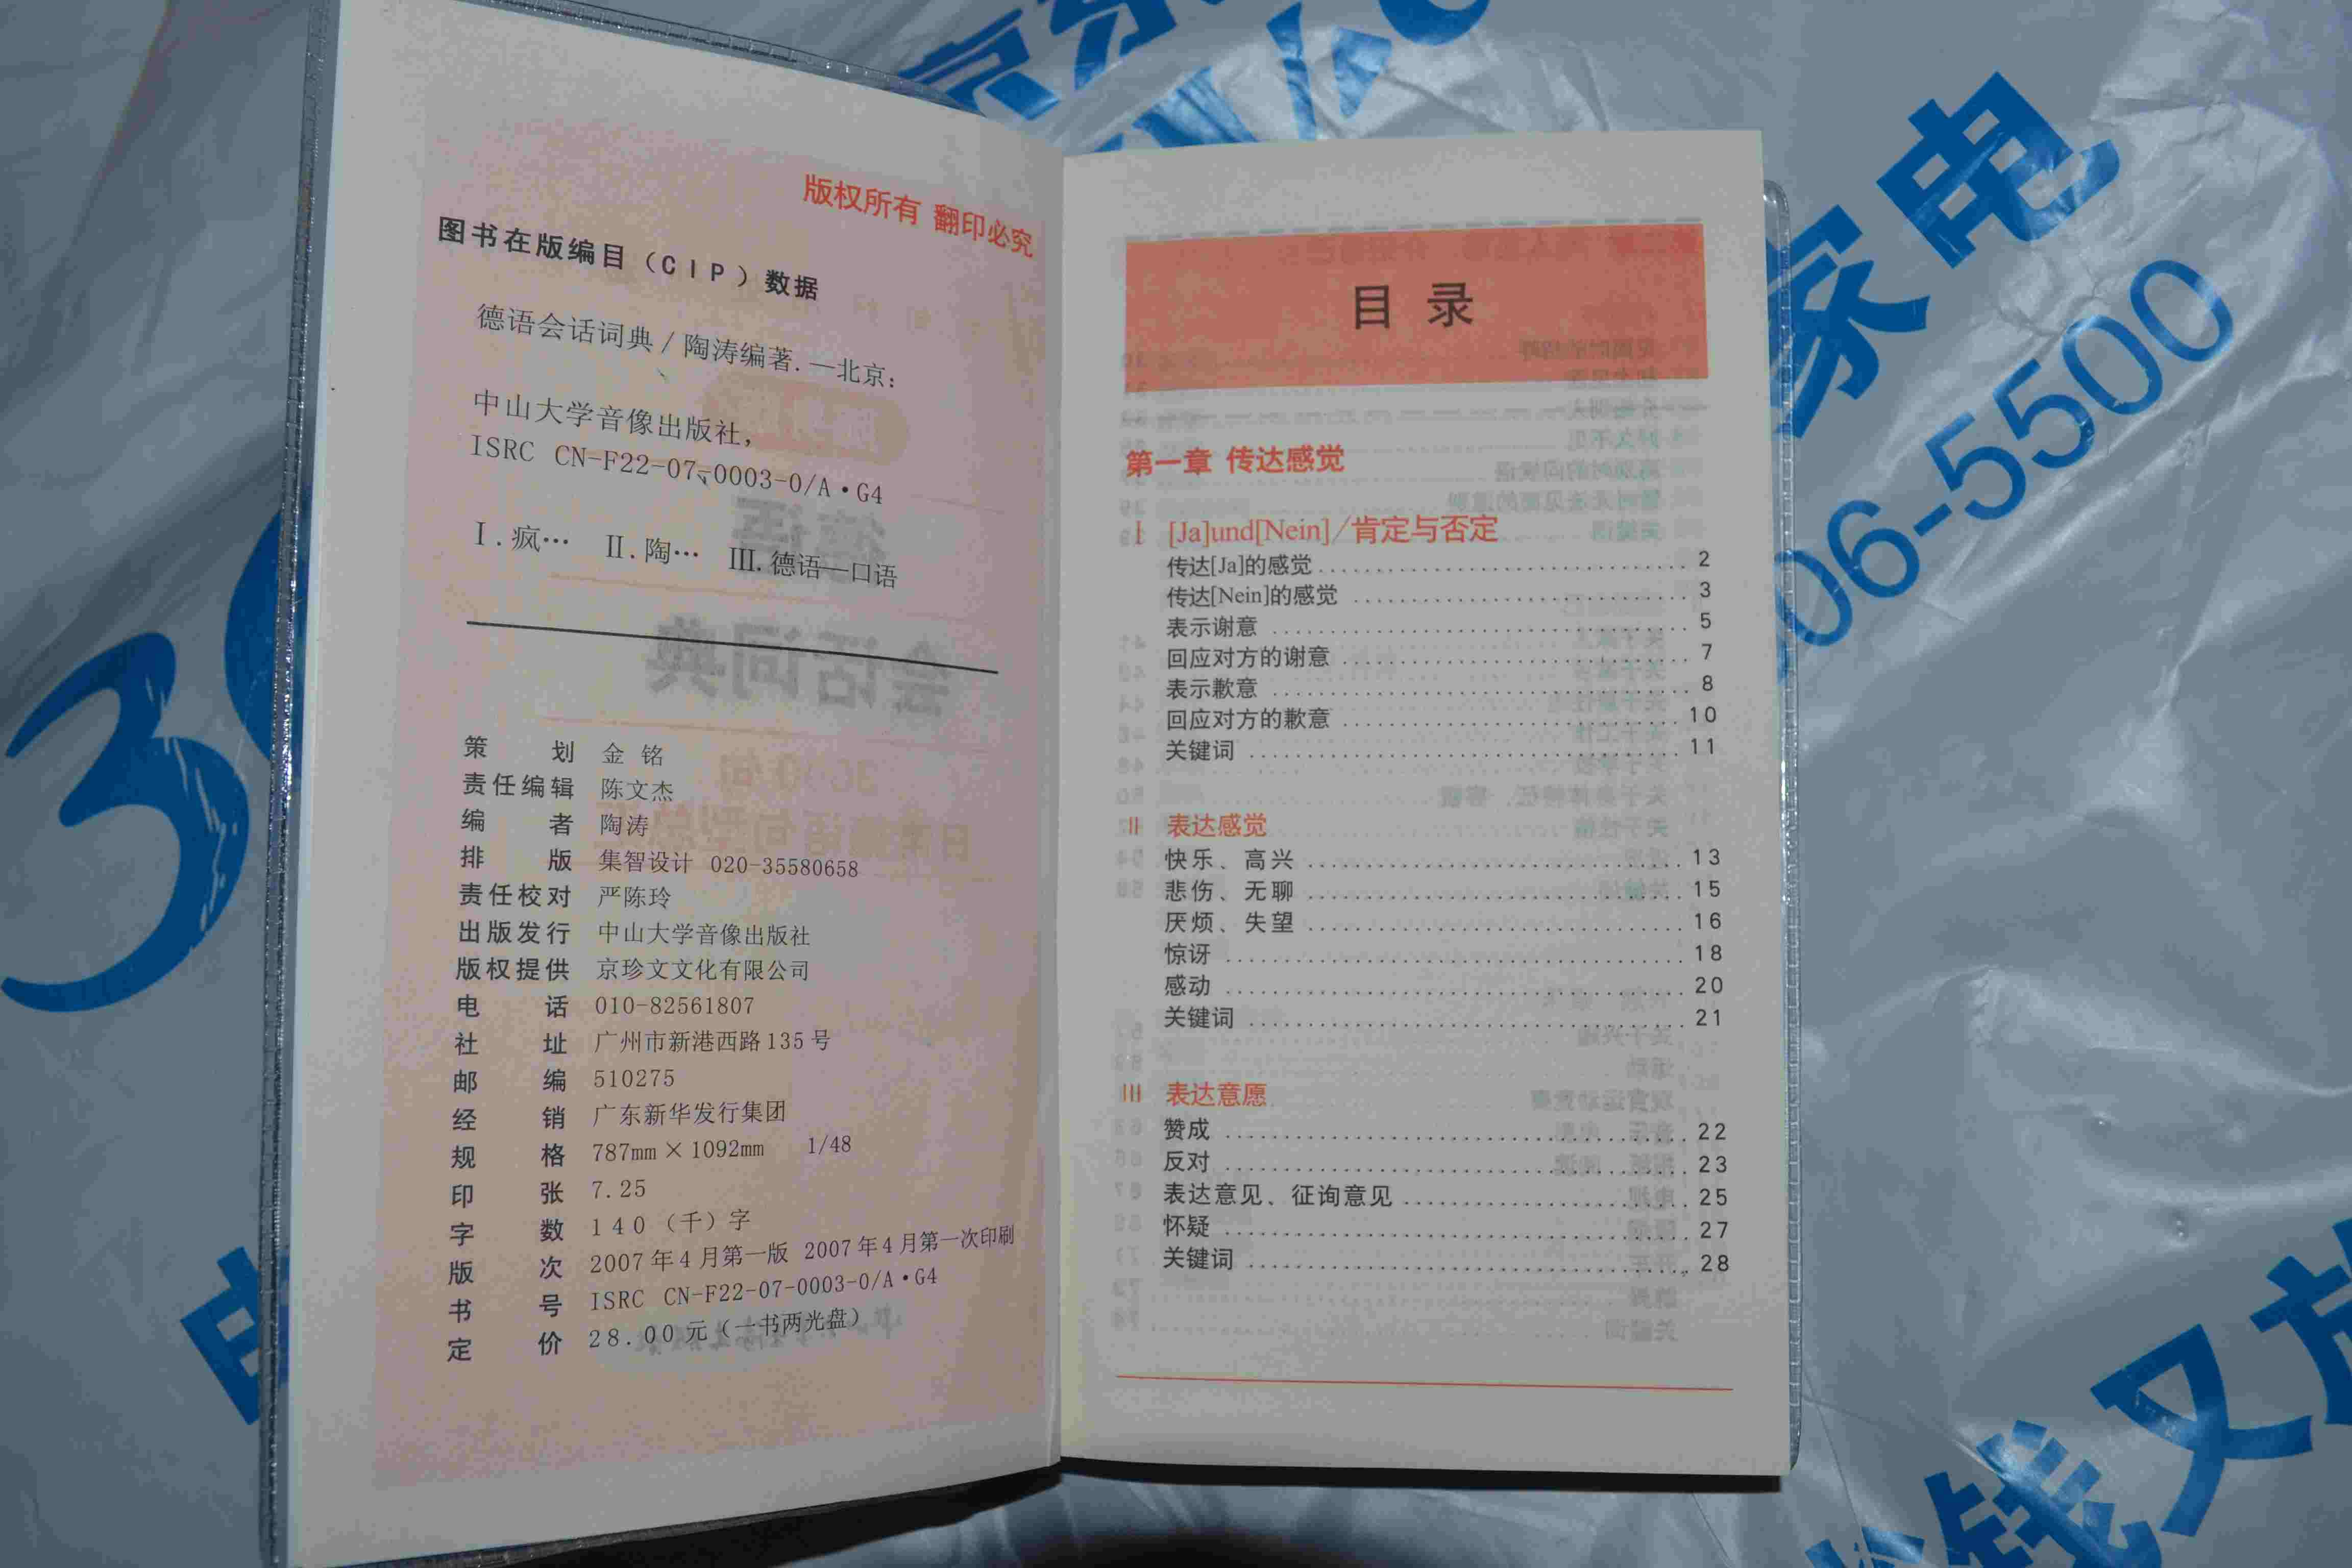 版权所有 翻印必究
图书在版编目（CIP）数据
德语会话词典/陶涛编著.—北京：
中山大学音像出版社，
ISRC CN-F22-07-0003-0/A·G4
Ⅰ.疯… Ⅱ.陶… Ⅲ.德语—口语
策划 金铭
责任编辑 陈文杰
编者 陶涛
排版 集智设计 020-35580658
责任校对 严陈玲
出版发行 中山大学音像出版社
版权提供 京珍文文化有限公司
电话 010-82561807
社址 广州市新港西路135号
邮编 510275
经销 广东新华发行集团
规格 787mm×1092mm 1/48
印张 7.25
字数 140（千）字
版次 2007年4月第一版 2007年4月第一次印刷
书号 ISRC CN-F22-07-0003-0/A·G4
定价 28.00元（一书两光盘）
目录
第一章 传达感觉
Ⅰ [Ja]und[Nein]/肯定与否定
传达[Ja]的感觉 2
传达[Nein]的感觉 3
表示谢意 5
回应对方的谢意 7
表示歉意 8
回应对方的歉意 10
关键词 11
Ⅱ 表达感觉
快乐、高兴 13
悲伤、无聊 15
厌烦、失望 16
惊讶 18
感动 20
关键词 21
Ⅲ 表达意愿
赞成 22
反对 23
表达意见、征询意见 25
怀疑 27
关键词 28
家电
06-5500
钱又放